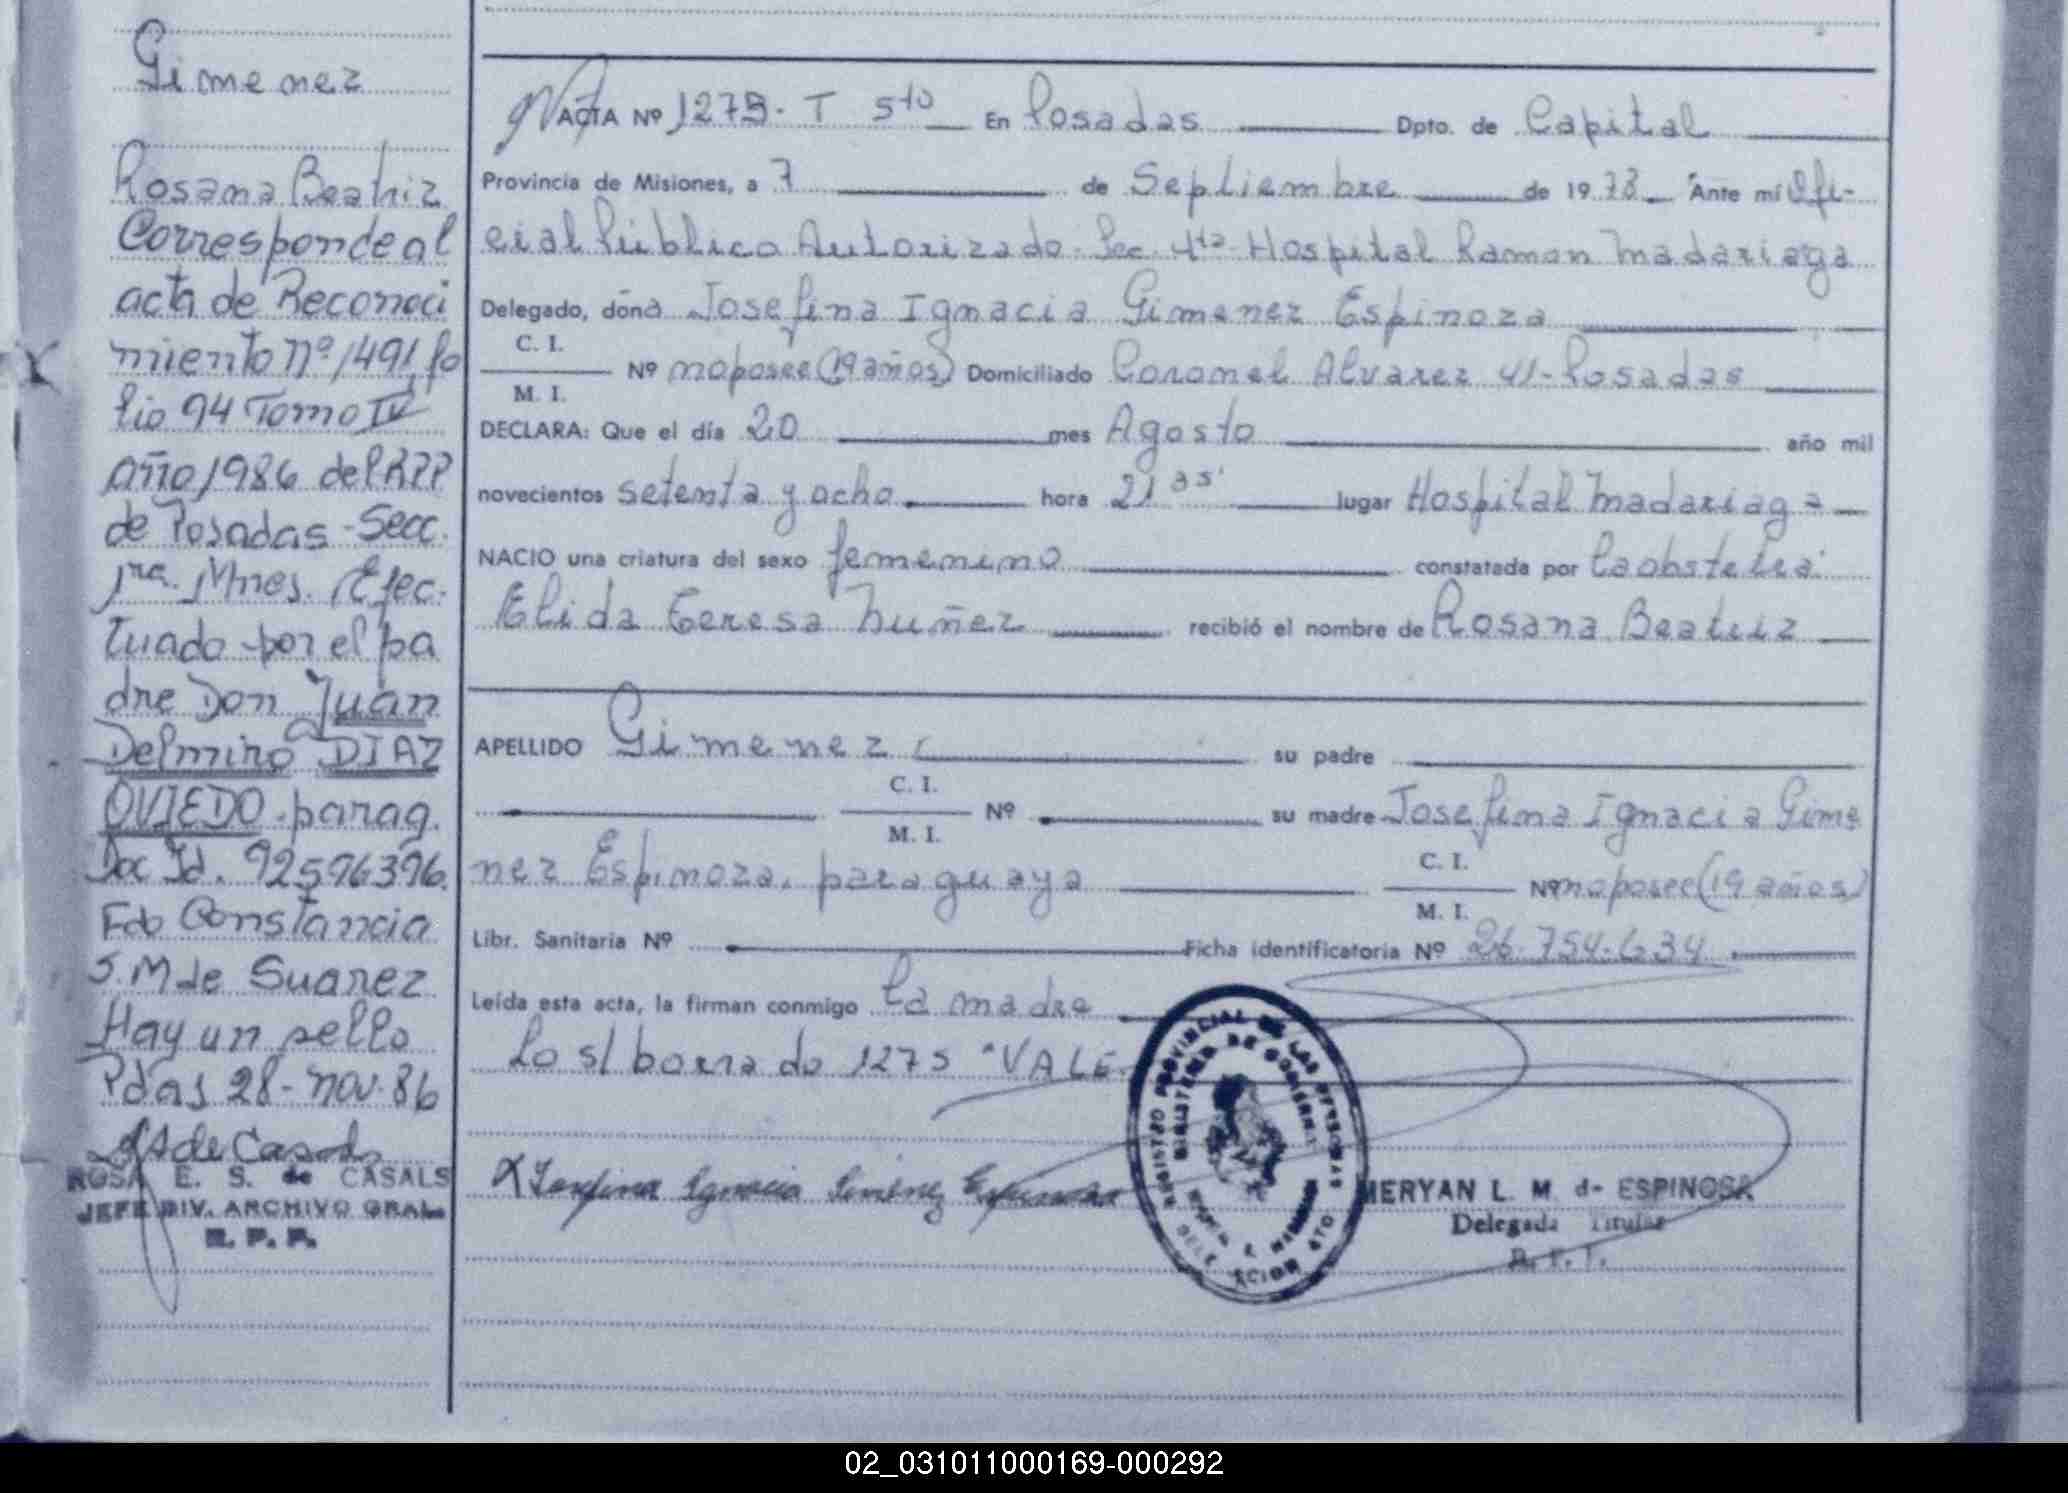 Gimenez
Rosana Beatriz
Corresponde al
acta de Reconoci
miento nº 1491 fo
lio 94 Tomo IV
año 1986 del RPP
de Posadas - Secc.
1ra. Mnes. Efec-
tuado por el pa
dre Don Juan
Delmiro DIAZ
OVIEDO - parag.
Doc Id. 92576396.
Fdo Constancia
S. M de Suarez
Hay un sello
Pdas 28 - nov. 86
ROSA E. S. de CASALS
JEFE DIV. ARCHIVO GRAL.
R. P. P.
ACTA Nº 1275 - T 5to En Posadas Dpto. de Capital
Provincia de Misiones, a 7 de Septiembre de 1978 Ante mí Ofi-
cial Público Autorizado. Sec. 4ta. Hospital Ramon Madariaga
Delegado, doña Josefina Ignacia Gimenez Espinoza
C. I.
M. I.
Nº no posee (19 años) Domiciliado Coronel Alvarez 41 - Posadas
DECLARA: Que el día 20 mes Agosto año mil
novecientos setenta y ocho hora 21 as. lugar Hospital Madariaga
NACIO una criatura del sexo femenino constatada por la obstetra
Elida Teresa Nuñez recibió el nombre de Rosana Beatriz
APELLIDO Gimenez su padre
C. I.
M. I.
Nº su madre Josefina Ignacia Gime
nez Espinoza, paraguaya
C. I.
M. I.
Nº no posee (19 años)
Libr. Sanitaria Nº Ficha identificatoria Nº 26.754.634
Leída esta acta, la firman conmigo la madre
Lo s/ borrado 1275 "VALE.
Josefina Ignacia Gimenez Espinoza
REGISTRO PROVINCIAL DE LAS PERSONAS
MINISTERIO DE GOBIERNO
MERYAN L. M. de ESPINOSA
Delegada Titular
R. P. P.
02_031011000169-000292